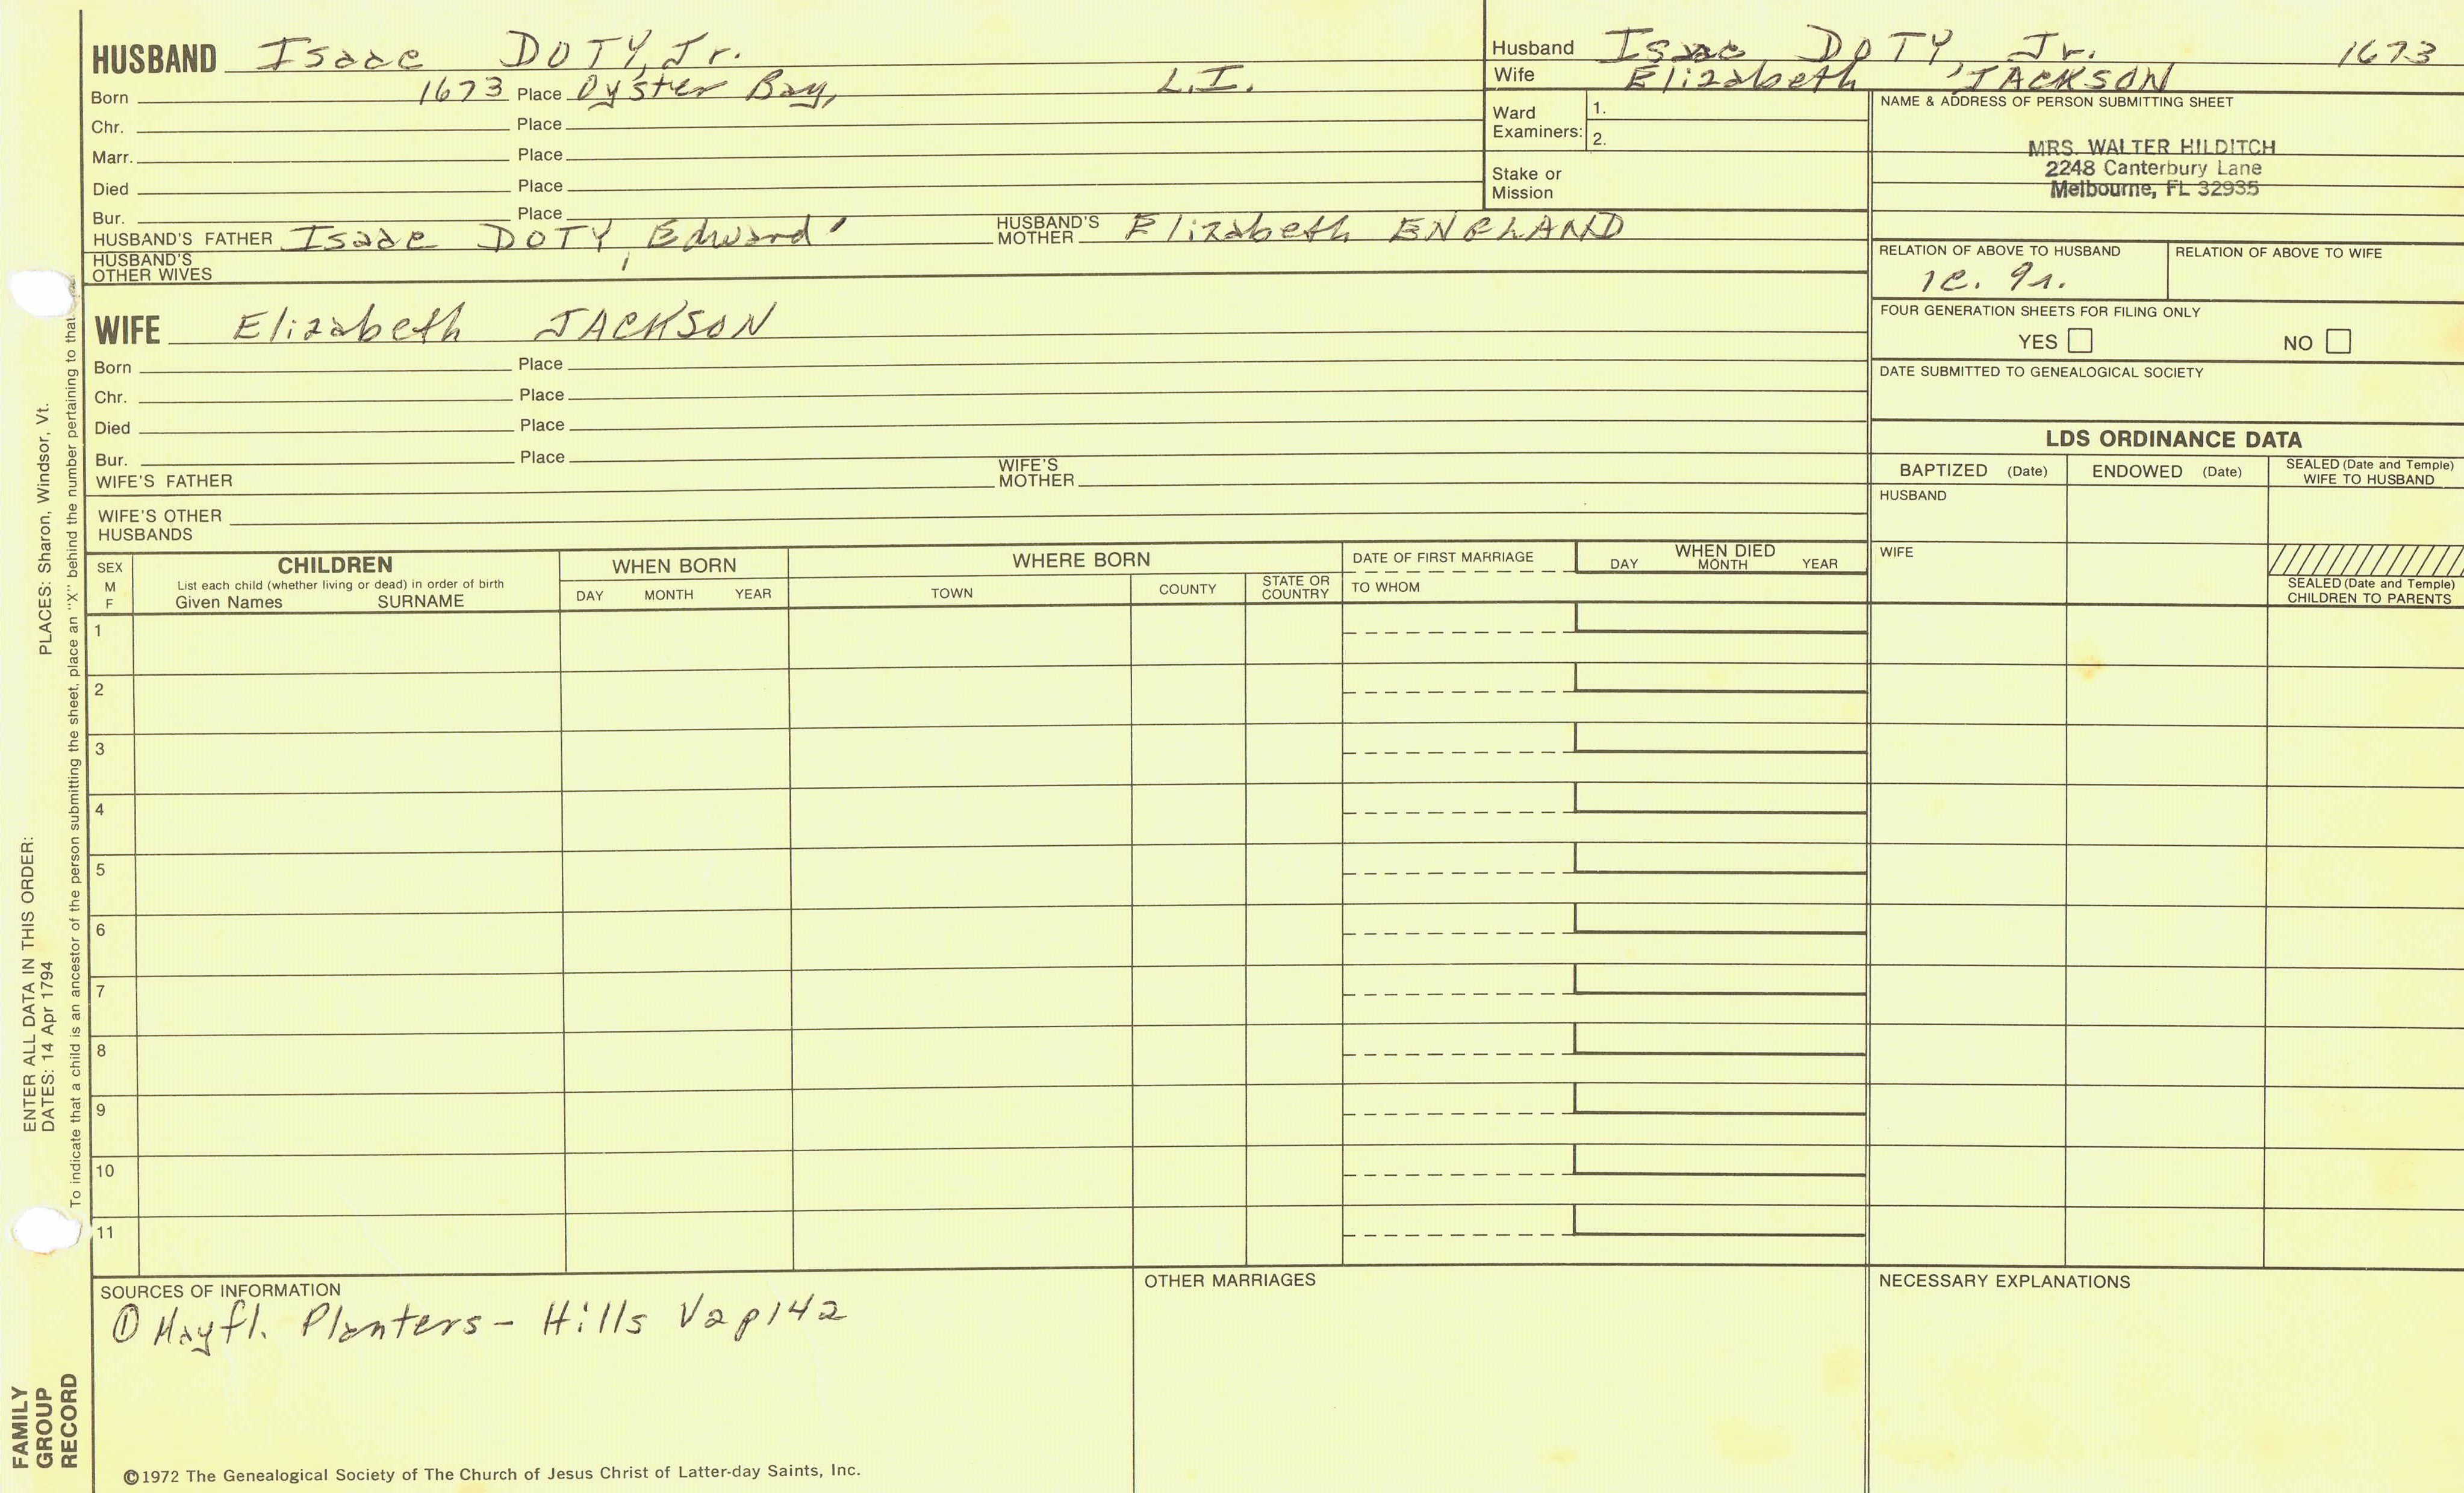 HUSBAND Isaac DOTY, Jr.
Born 1673 Place Oyster Bay, L.I.
Chr. Place
Marr. Place
Died Place
Bur. Place
HUSBAND'S FATHER Isaac DOTY, Edward' HUSBAND'S MOTHER Elizabeth ENGLAND
HUSBAND'S OTHER WIVES
Husband Isaac DOTY, Jr. 1673
Wife Elizabeth JACKSON
Ward Examiners: 1.
2.
Stake or Mission
NAME & ADDRESS OF PERSON SUBMITTING SHEET
MRS. WALTER HILDITCH
2248 Canterbury Lane
Melbourne, FL 32935
RELATION OF ABOVE TO HUSBAND RELATION OF ABOVE TO WIFE
FOUR GENERATION SHEETS FOR FILING ONLY
YES NO
DATE SUBMITTED TO GENEALOGICAL SOCIETY
WIFE Elizabeth JACKSON
Born Place
Chr. Place
Died Place
Bur. Place
WIFE'S FATHER WIFE'S MOTHER
WIFE'S OTHER HUSBANDS
LDS ORDINANCE DATA
BAPTIZED (Date) ENDOWED (Date) SEALED (Date and Temple) WIFE TO HUSBAND
HUSBAND
WIFE
SEALED (Date and Temple) CHILDREN TO PARENTS
SEX M F
CHILDREN
List each child (whether living or dead) in order of birth
Given Names SURNAME
WHEN BORN
DAY MONTH YEAR
WHERE BORN
TOWN COUNTY STATE OR COUNTRY
DATE OF FIRST MARRIAGE
TO WHOM
WHEN DIED
DAY MONTH YEAR
1
2
3
4
5
6
7
8
9
10
11
SOURCES OF INFORMATION
① Mayfl. Planters - Hills V2p142
OTHER MARRIAGES
NECESSARY EXPLANATIONS
©1972 The Genealogical Society of The Church of Jesus Christ of Latter-day Saints, Inc.
FAMILY
GROUP
RECORD
ENTER ALL DATA IN THIS ORDER:
DATES: 14 Apr 1794 PLACES: Sharon, Windsor, Vt.
To indicate that a child is an ancestor of the person submitting the sheet, place an "X" behind the number pertaining to that